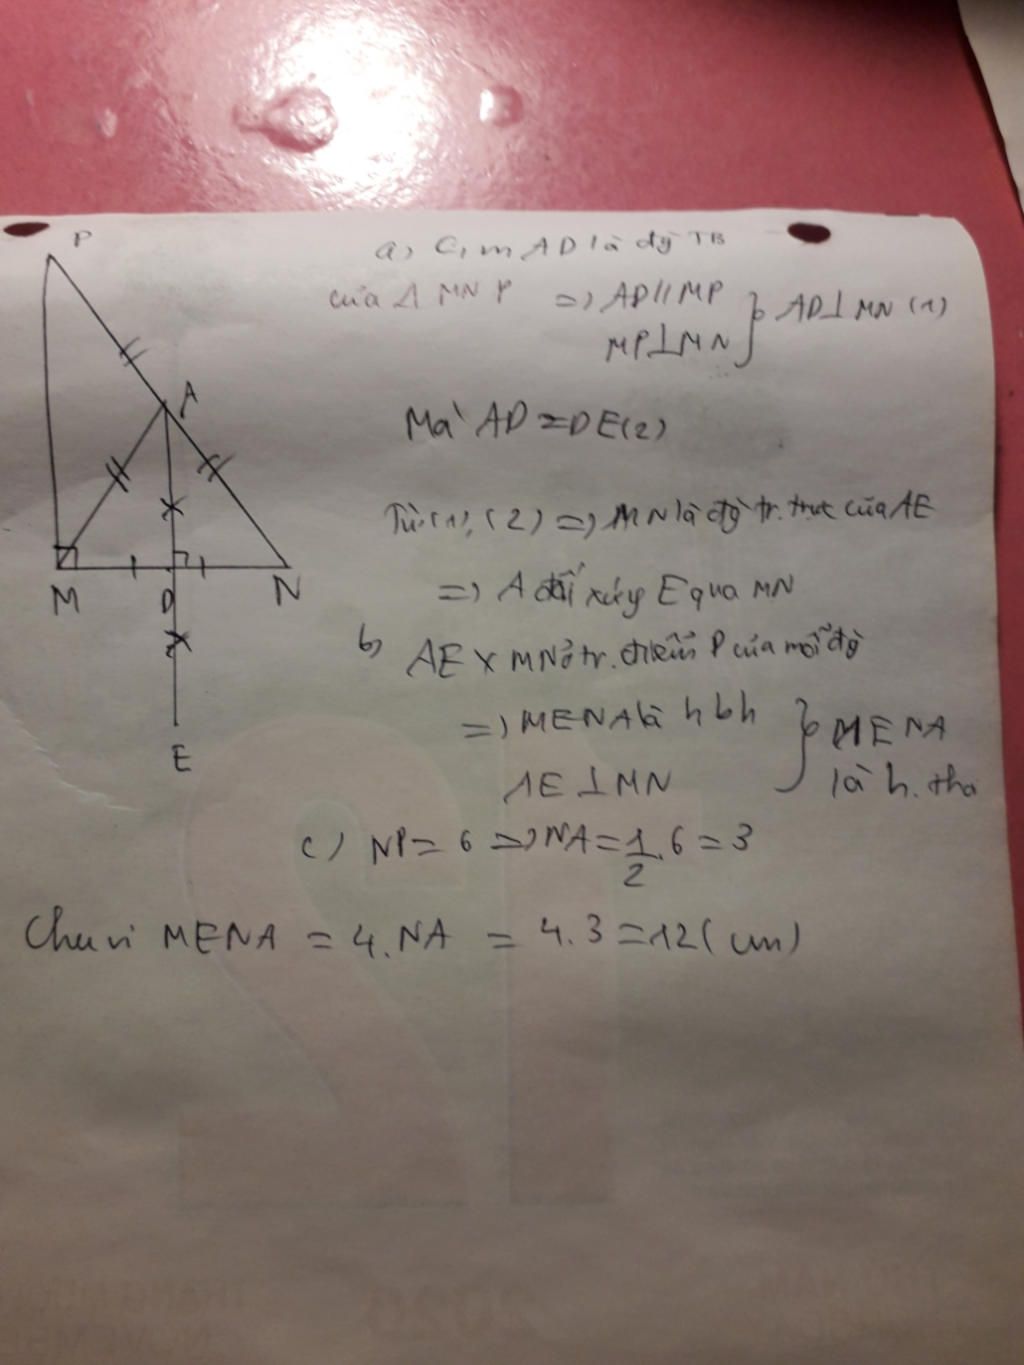 P
A
M
D
N
E
a) C,m AD là đg TB
của Δ MNP => AD//MP
MP⊥MN } AD⊥MN (1)
Mà AD=DE(2)
Từ (1), (2) => MN là đg tr. trực của AE
=> A đối xứng E qua MN
b) AE x MN ở tr. điểm P của mỗi đg
=> MENA là hbh
AE⊥MN } MENA
là h. tho
c) NP= 6 => NA= 1/2 . 6 = 3
Chu vi MENA = 4.NA = 4.3 =12( cm)
2020